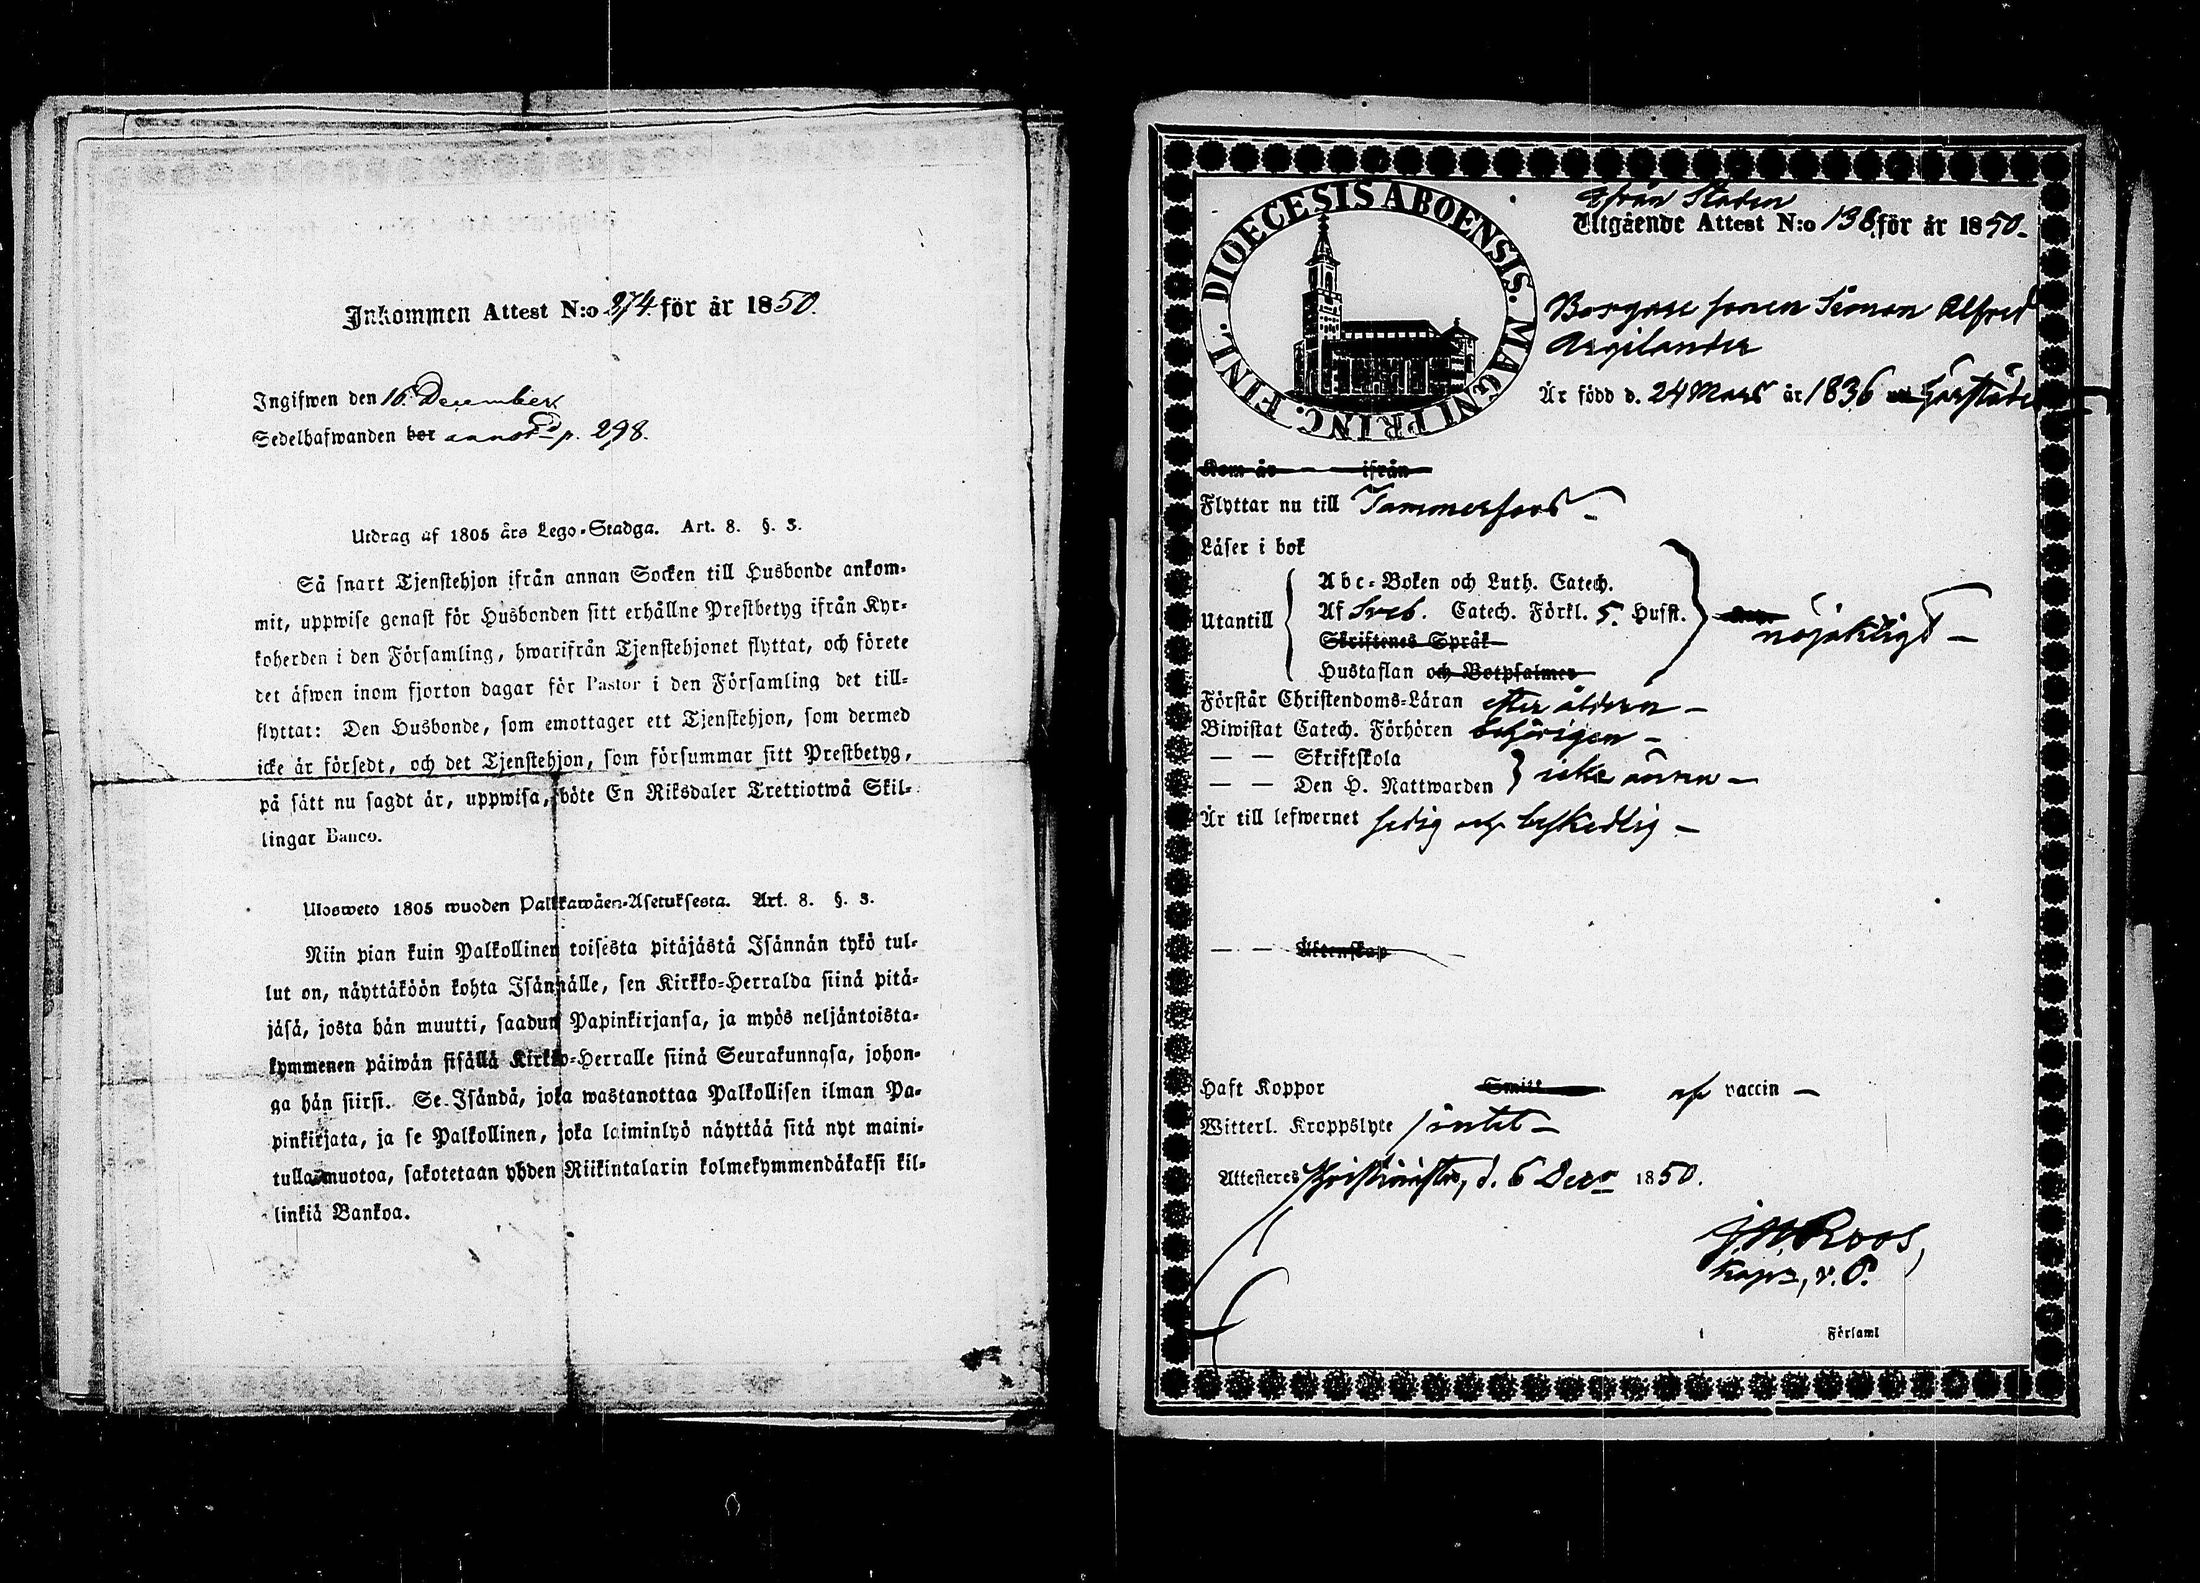 Inkommen Attest N:o 274 för år 1850.
Ingifwen den 16 December
Sedelhafwanden bor annot. p. 298.
Utdrag af 1805 års Lego-Stadga. Art. 8. §. 3.
Så snart Tjenstehjon ifrån annan Socken till Husbonde ankom-
mit, uppwise genast för Husbonden sitt erhållne Prestbetyg ifrån Kyr-
koherden i den Församling, hwarifrån Tjenstehjonet flyttat, och förete
det äfwen inom fjorton dagar för Pastor i den Församling det till-
flyttat: Den Husbonde, som emottager ett Tjenstehjon, som dermed
icke är försedt, och det Tjenstehjon, som försummar sitt Prestbetyg,
på sätt nu sagdt är, uppwisa, böte En Riksdaler Trettiotwå Skil-
lingar Banco.
Ulosweto 1805 wuoden Palkkawäen-Asetuksesta. Art. 8. §. 3.
Niin pian kuin Palkollinen toisesta pitäjästä Isännän tykö tul-
lut on, näyttäköön kohta Isännälle, sen Kirkko-Herralda siinä pitä-
jäsä, josta hän muutti, saadun Papinkirjansa, ja myös neljäntoista-
kymmenen päiwän sisällä Kirkko-Herralle siinä Seurakunnasa, johon-
ga hän siirsi. Se Isändä, joka wastanottaa Palkollisen ilman Pa-
pinkirjata, ja se Palkollinen, joka laiminlyö näyttää sitä nyt maini-
tulla muotoa, sakotetaan yhden Riikintalarin kolmekymmendäkaksi kil-
linkiä Bankoa.
DIOECESIS ABOENSIS. MAGNI PRINC. FINL.
Ifrån Staden
Utgående Attest N:o 138 för år 1850.
Borgare sonen Simon Alfred
Argilander
Är född d. 24 Mars år 1836
Kom år ifrån
Flyttar nu till Tammerfors
Läser i bok
Utantill
Abc-Boken och Luth. Catech.
Af Sveb. Catech. Förkl. 5. Hufst.
Skriftenes Språk
Hustaflan och Botpsalmer
nöjaktigt
Förstår Christendoms-Läran efter åldern
Biwistat Catech. Förhören behörigen
— — Skriftskola
— — Den H. Nattwarden icke ännu
Är till lefwernet sedig och beskedlig
— — Äktenskap
Haft Koppor Smitt af vaccin
Witterl. Kroppslyte intet
Attesteres Christinestad, d. 6 Decr 1850.
Roos,
Kapn, v. P.
i Församl